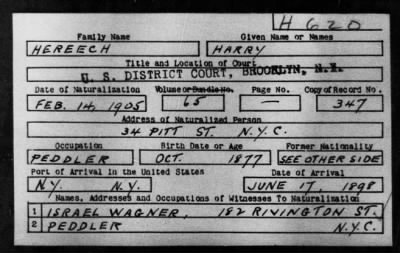 H 620
Family Name Given Name or Names
HEREECH HARRY
Title and Location of Court
U. S. DISTRICT COURT, BROOKLYN, N.Y.
Date of Naturalization Volume or Bundle No. Page No. Copy of Record No.
FEB. 14, 1905 65 — 347
Address of Naturalized Person
34 PITT ST. N.Y.C.
Occupation Birth Date or Age Former Nationality
PEDDLER OCT. 1877 SEE OTHER SIDE
Port of Arrival in the United States Date of Arrival
N.Y. N.Y. JUNE 17, 1898
Names, Addresses and Occupations of Witnesses To Naturalization
1 ISRAEL WAGNER, 182 RIVINGTON ST.
2 PEDDLER N.Y.C.